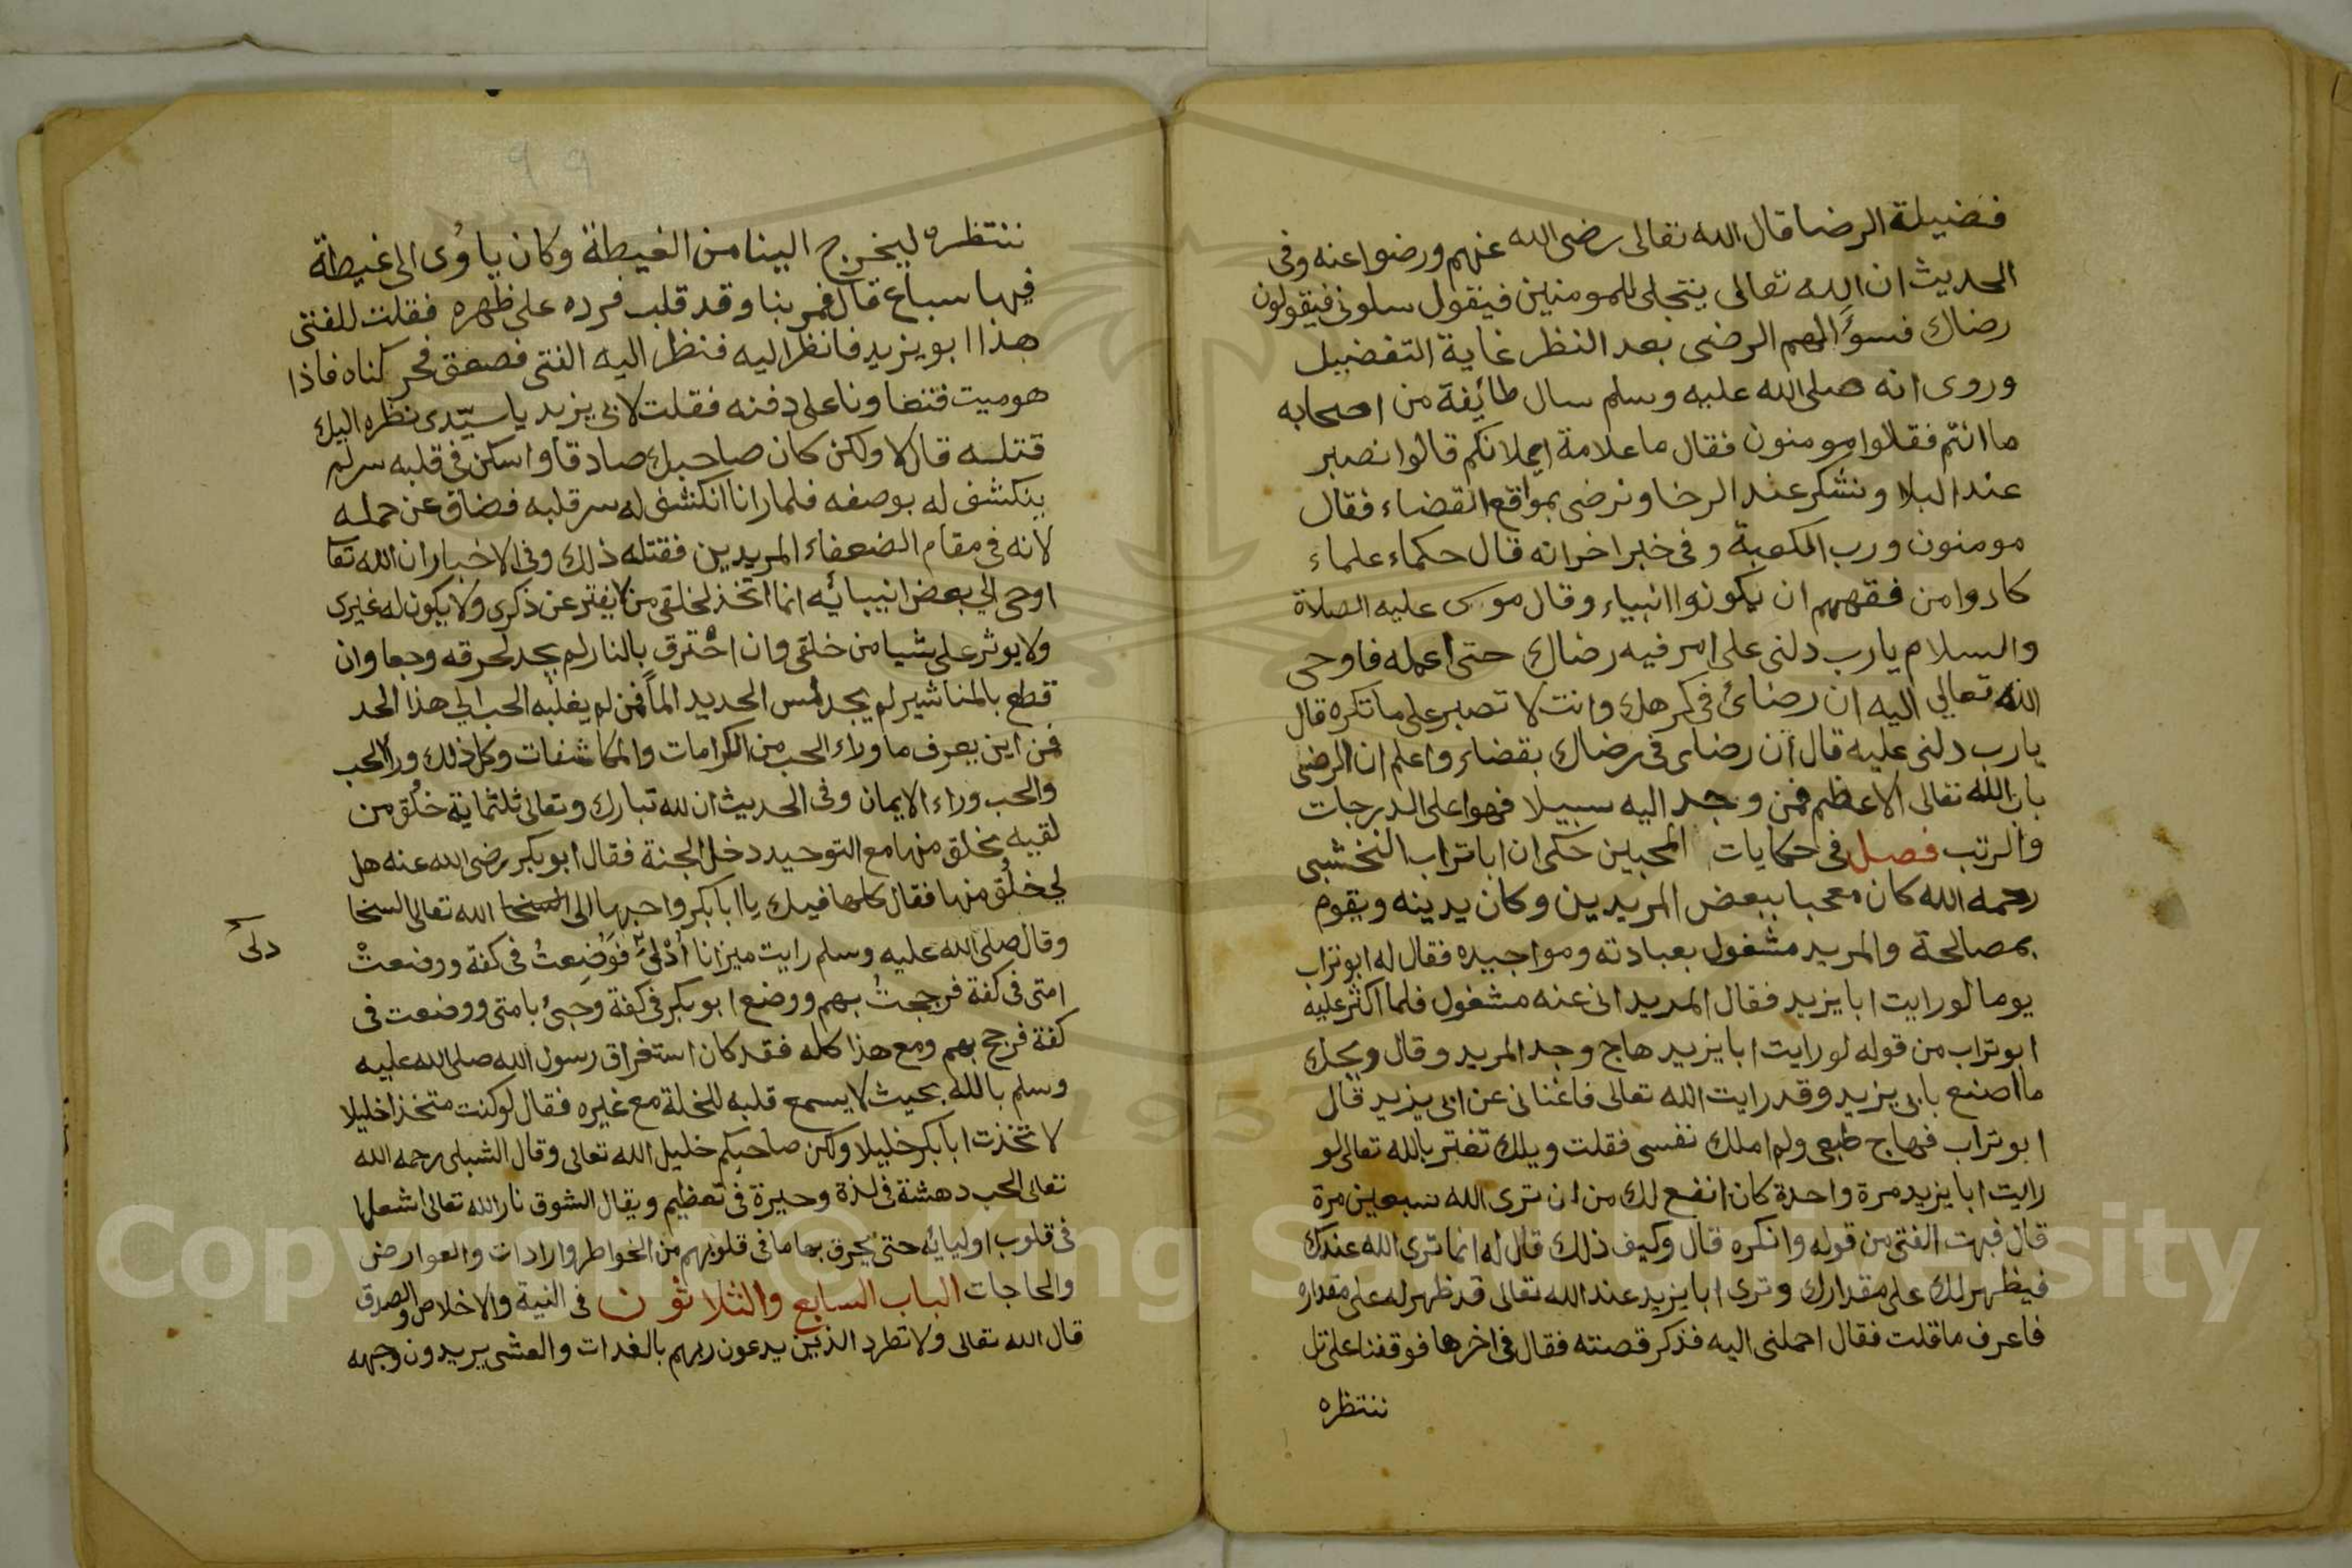 فضيلة الرضا قال الله تعالى رضى الله عنهم ورضوا عنه وفى
الحديث ان الله تعالى يتجلى للمومنين فيقول سلونى فيقولون
رضاك فسؤالهم الرضى بعد النظر غاية التفضيل
وروى انه صلى الله عليه وسلم سال طائفة من اصحابه
ما انتم فقالوا مومنون فقال ما علامة ايمانكم قالوا نصبر
عند البلا ونشكر عند الرخا ونرضى بمواقع القضاء فقال
مومنون ورب الكعبة وفى خبر اخر انه قال حكماء علماء
كادوا من فقههم ان يكونوا انبياء وقال موسى عليه الصلاة
والسلام يارب دلنى على امر فيه رضاك حتى اعمله فاوحى
الله تعالى اليه ان رضائ فى كرهك وانت لا تصبر على ما تكره قال
يارب دلنى عليه قال ان رضاى فى رضاك بقضائ واعلم ان الرضى
باب الله تعالى الاعظم فمن وجد اليه سبيلا فهو اعلى الدرجات
والرتب فصل فى حكايات المحبين حكى ان ابا تراب النخشبى
رحمه الله كان معجبا ببعض المريدين وكان يدينه ويقوم
بمصالحة والمريد مشغول بعبادته ومواجيده فقال له ابو تراب
يوما لو رايت ابا يزيد فقال المريد انى عنه مشغول فلما اكثر عليه
ابو تراب من قوله لو رايت ابا يزيد هاج وجد المريد وقال ويحك
ما اصنع بابى يزيد وقد رايت الله تعالى فاغنانى عن ابى يزيد قال
ابو تراب فهاج طبعى ولم املك نفسى فقلت ويلك تغتر بالله تعالى لو
رايت ابا يزيد مرة واحدة كان انفع لك من ان ترى الله سبعين مرة
قال فبهت الفتى من قوله وانكره قال وكيف ذلك قال له انما ترى الله عندك
فيظهر لك على مقدارك وترى ابا يزيد عند الله تعالى قد ظهر له على مقداره
فاعرف ما قلت فقال احملنى اليه فذكر قصته فقال فى اخرها فوقفنا على تل
ننتظره
ننتظره ليخرج الينا من الغيطة وكان ياوى الى غيطة
فيها سباع قال فمر بنا وقد قلب فرده على ظهره فقلت للفتى
هذا ابو يزيد فانظر اليه فنظر اليه الفتى فصعق فحركناه فاذا
هو ميت فتعاونا على دفنه فقلت لابى يزيد يا سيدى نظره اليك
قتله قال لا ولكن كان صاحبك صادقا واسكن فى قلبه سر لم
ينكشف له بوصفه فلما رانا انكشف له سر قلبه فضاق عن حمله
لانه فى مقام الضعفاء المريدين فقتله ذلك وفى الاخبار ان الله تعا
اوحى الى بعض انبيائه انما اتخذ لخلقى من لا يفتر عن ذكرى ولا يكون له غيرى
ولا يوثر على شيا من خلقى وان احترق بالنار لم يجد لحرقه وجعا وان
قطع بالمناشير لم يجد لمس الحديد الماً فمن لم يغلبه الحب الى هذا الحد
فمن اين يعرف ما وراء الحب من الكرامات والمكاشفات وكل ذلك ورا الحب
والحب وراء الايمان وفى الحديث ان لله تبارك وتعالى ثلثماية خلق من
لقيه بخلق منها مع التوحيد دخل الجنة فقال ابو بكر رضى الله عنه هل
لى خلق منها فقال كلها فيك يا ابا بكر واحبها الى الله تعالى السخا
وقال صلى الله عليه وسلم رايت ميزانا أدلى فوضعت فى كفة ووضعت
دلى
امتى فى كفة فرجحت بهم ووضع ابو بكر فى كفة وجئ بامتى ووضعت فى
كفة فرجح بهم ومع هذا كله فقد كان استغراق رسول الله صلى الله عليه
وسلم بالله بحيث لا يسمع قلبه للخلة مع غيره فقال لو كنت متخذا خليلا
لاتخذت ابا بكر خليلا ولكن صاحبكم خليل الله تعالى وقال الشبلى رحمه الله
تعالى الحب دهشة فى لذة وحيرة فى تعظيم ويقال الشوق نار الله تعالى اشعلها
فى قلوب اوليائه حتى يحرق بها ما فى قلوبهم من الخواطر وارادات والعوارض
والحاجات الباب السابع والثلاثون فى النية والاخلاص والصدق
قال الله تعالى ولا تطرد الذين يدعون ربهم بالغدات والعشى يريدون وجهه
Copyright © King Saud University
1957